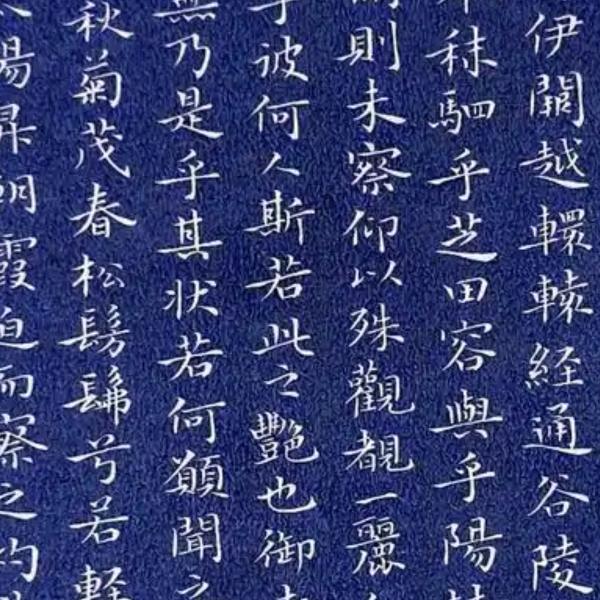 伊闕越轘轅経通谷陵
秣駟乎芝田容與乎陽
則未察仰以殊觀覩一麗
乎彼何人斯若此之艷也御
無乃是乎其状若何願聞之
秋菊茂春松髣髴兮若軽
陽昇朝霞迫而察之灼